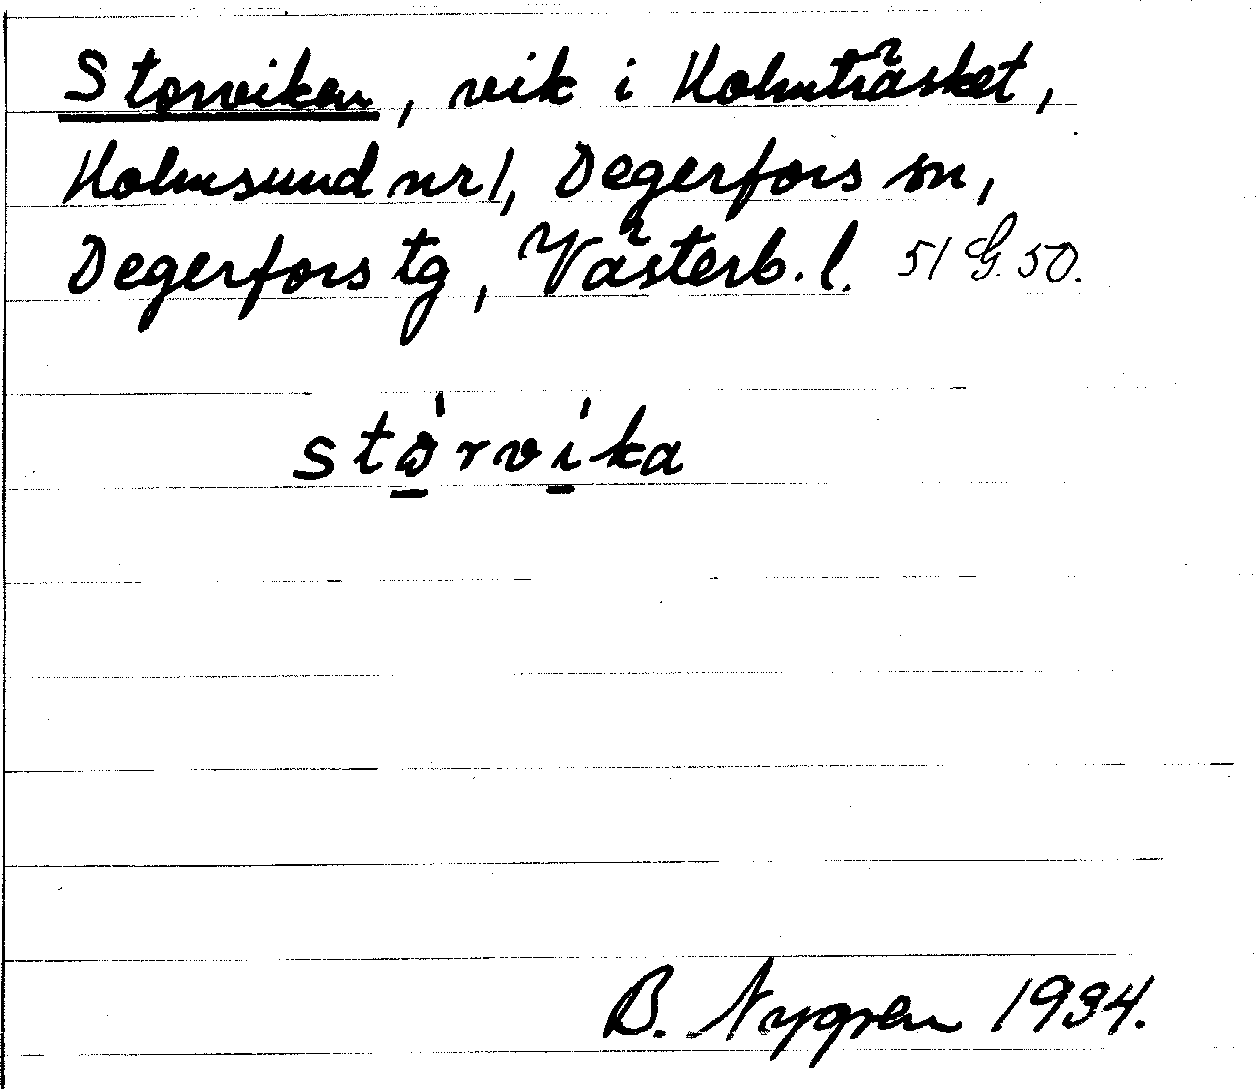 Storviken, vik i Holmträsket,
Holmsund nr 1, Degerfors sn,
Degerfors tg, Västerb. l. 51 G. 50.
stòrvìka
B. Nygren 1934.